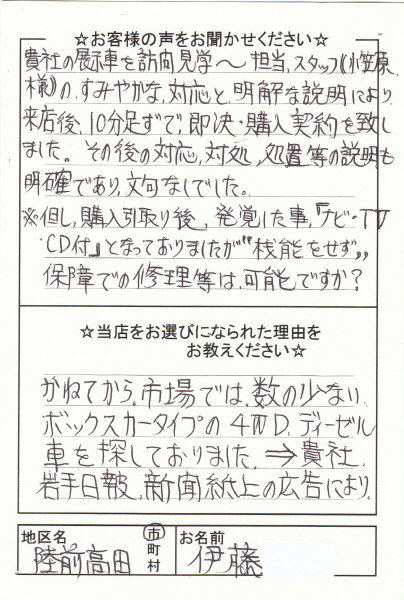 ☆お客様の声をお聞かせください☆
貴社の展示車を訪問見学～担当、スタッフ(小笠原
様)の、すみやかな対応と、明解な説明により
来店後、10分足ずで、即決・購入契約を致し
ました。その後の対応、対処、処置等の説明も
明確であり、文句なしでした。
※但し、購入引取り後、発覚した事、『ナビ・TV
・CD付』となっておりましたが〝桟能をせず〟
保障での修理等は、可能ですか?
☆当店をお選びになられた理由を
お教えください☆
かねてから、市場では、数の少ない
ボックスカータイプの4WD、ディーゼル
車を探しておりました。⇒貴社、
岩手日報、新聞紙上の広告により、
地区名
陸前高田
市
町
村
お名前
伊藤